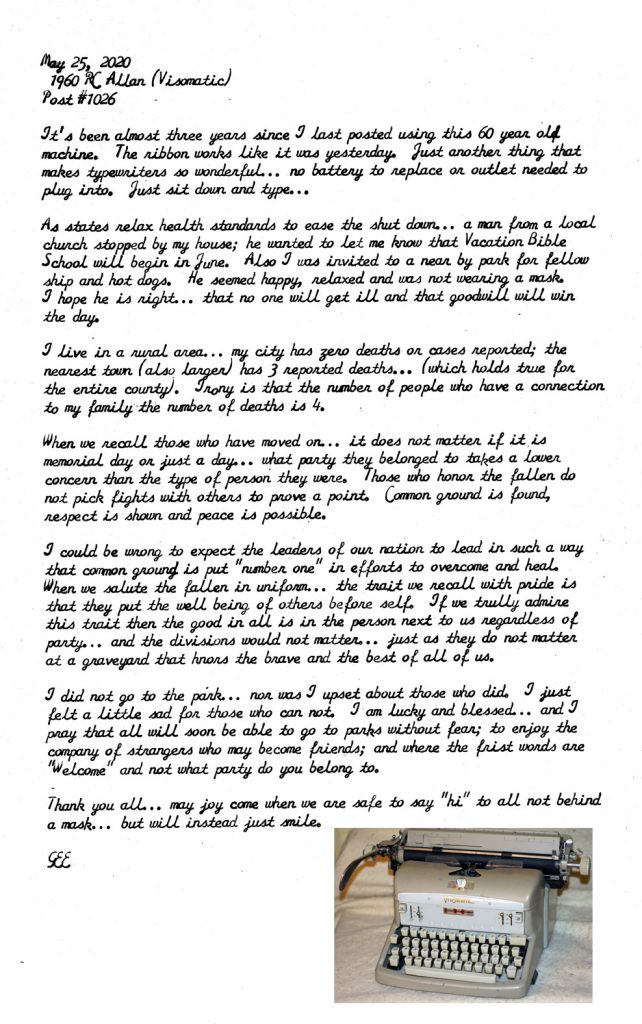 May 25, 2020
1960 RC Allan (Visomatic)
Post #1026
It's been almost three years since I last posted using this 60 year old
machine. The ribbon works like it was yesterday. Just another thing that
makes typewriters so wonderful... no battery to replace or outlet needed to
plug into. Just sit down and type...
As states relax health standards to ease the shut down... a man from a local
church stopped by my house; he wanted to let me know that Vacation Bible
School will begin in June. Also I was invited to a near by park for fellow
ship and hot dogs. He seemed happy, relaxed and was not wearing a mask.
I hope he is right... that no one will get ill and that goodwill will win
the day.
I live in a rural area... my city has zero deaths or cases reported; the
nearest town (also larger) has 3 reported deaths... (which holds true for
the entire county). Irony is that the number of people who have a connection
to my family the number of deaths is 4.
When we recall those who have moved on... it does not matter if it is
memorial day or just a day... what party they belonged to takes a lower
concern than the type of person they were. Those who honor the fallen do
not pick fights with others to prove a point. Common ground is found,
respect is shown and peace is possible.
I could be wrong to expect the leaders of our nation to lead in such a way
that common ground is put "number one" in efforts to overcome and heal.
When we salute the fallen in uniform... the trait we recall with pride is
that they put the well being of others before self. If we trully admire
this trait then the good in all is in the person next to us regardless of
party... and the divisions would not matter... just as they do not matter
at a graveyard that hnors the brave and the best of all of us.
I did not go to the park... nor was I upset about those who did. I just
felt a little sad for those who can not. I am lucky and blessed... and I
pray that all will soon be able to go to parks without fear; to enjoy the
company of strangers who may become friends; and where the frist words are
"Welcome" and not what party do you belong to.
Thank you all... may joy come when we are safe to say "hi" to all not behind
a mask... but will instead just smile.
GEE